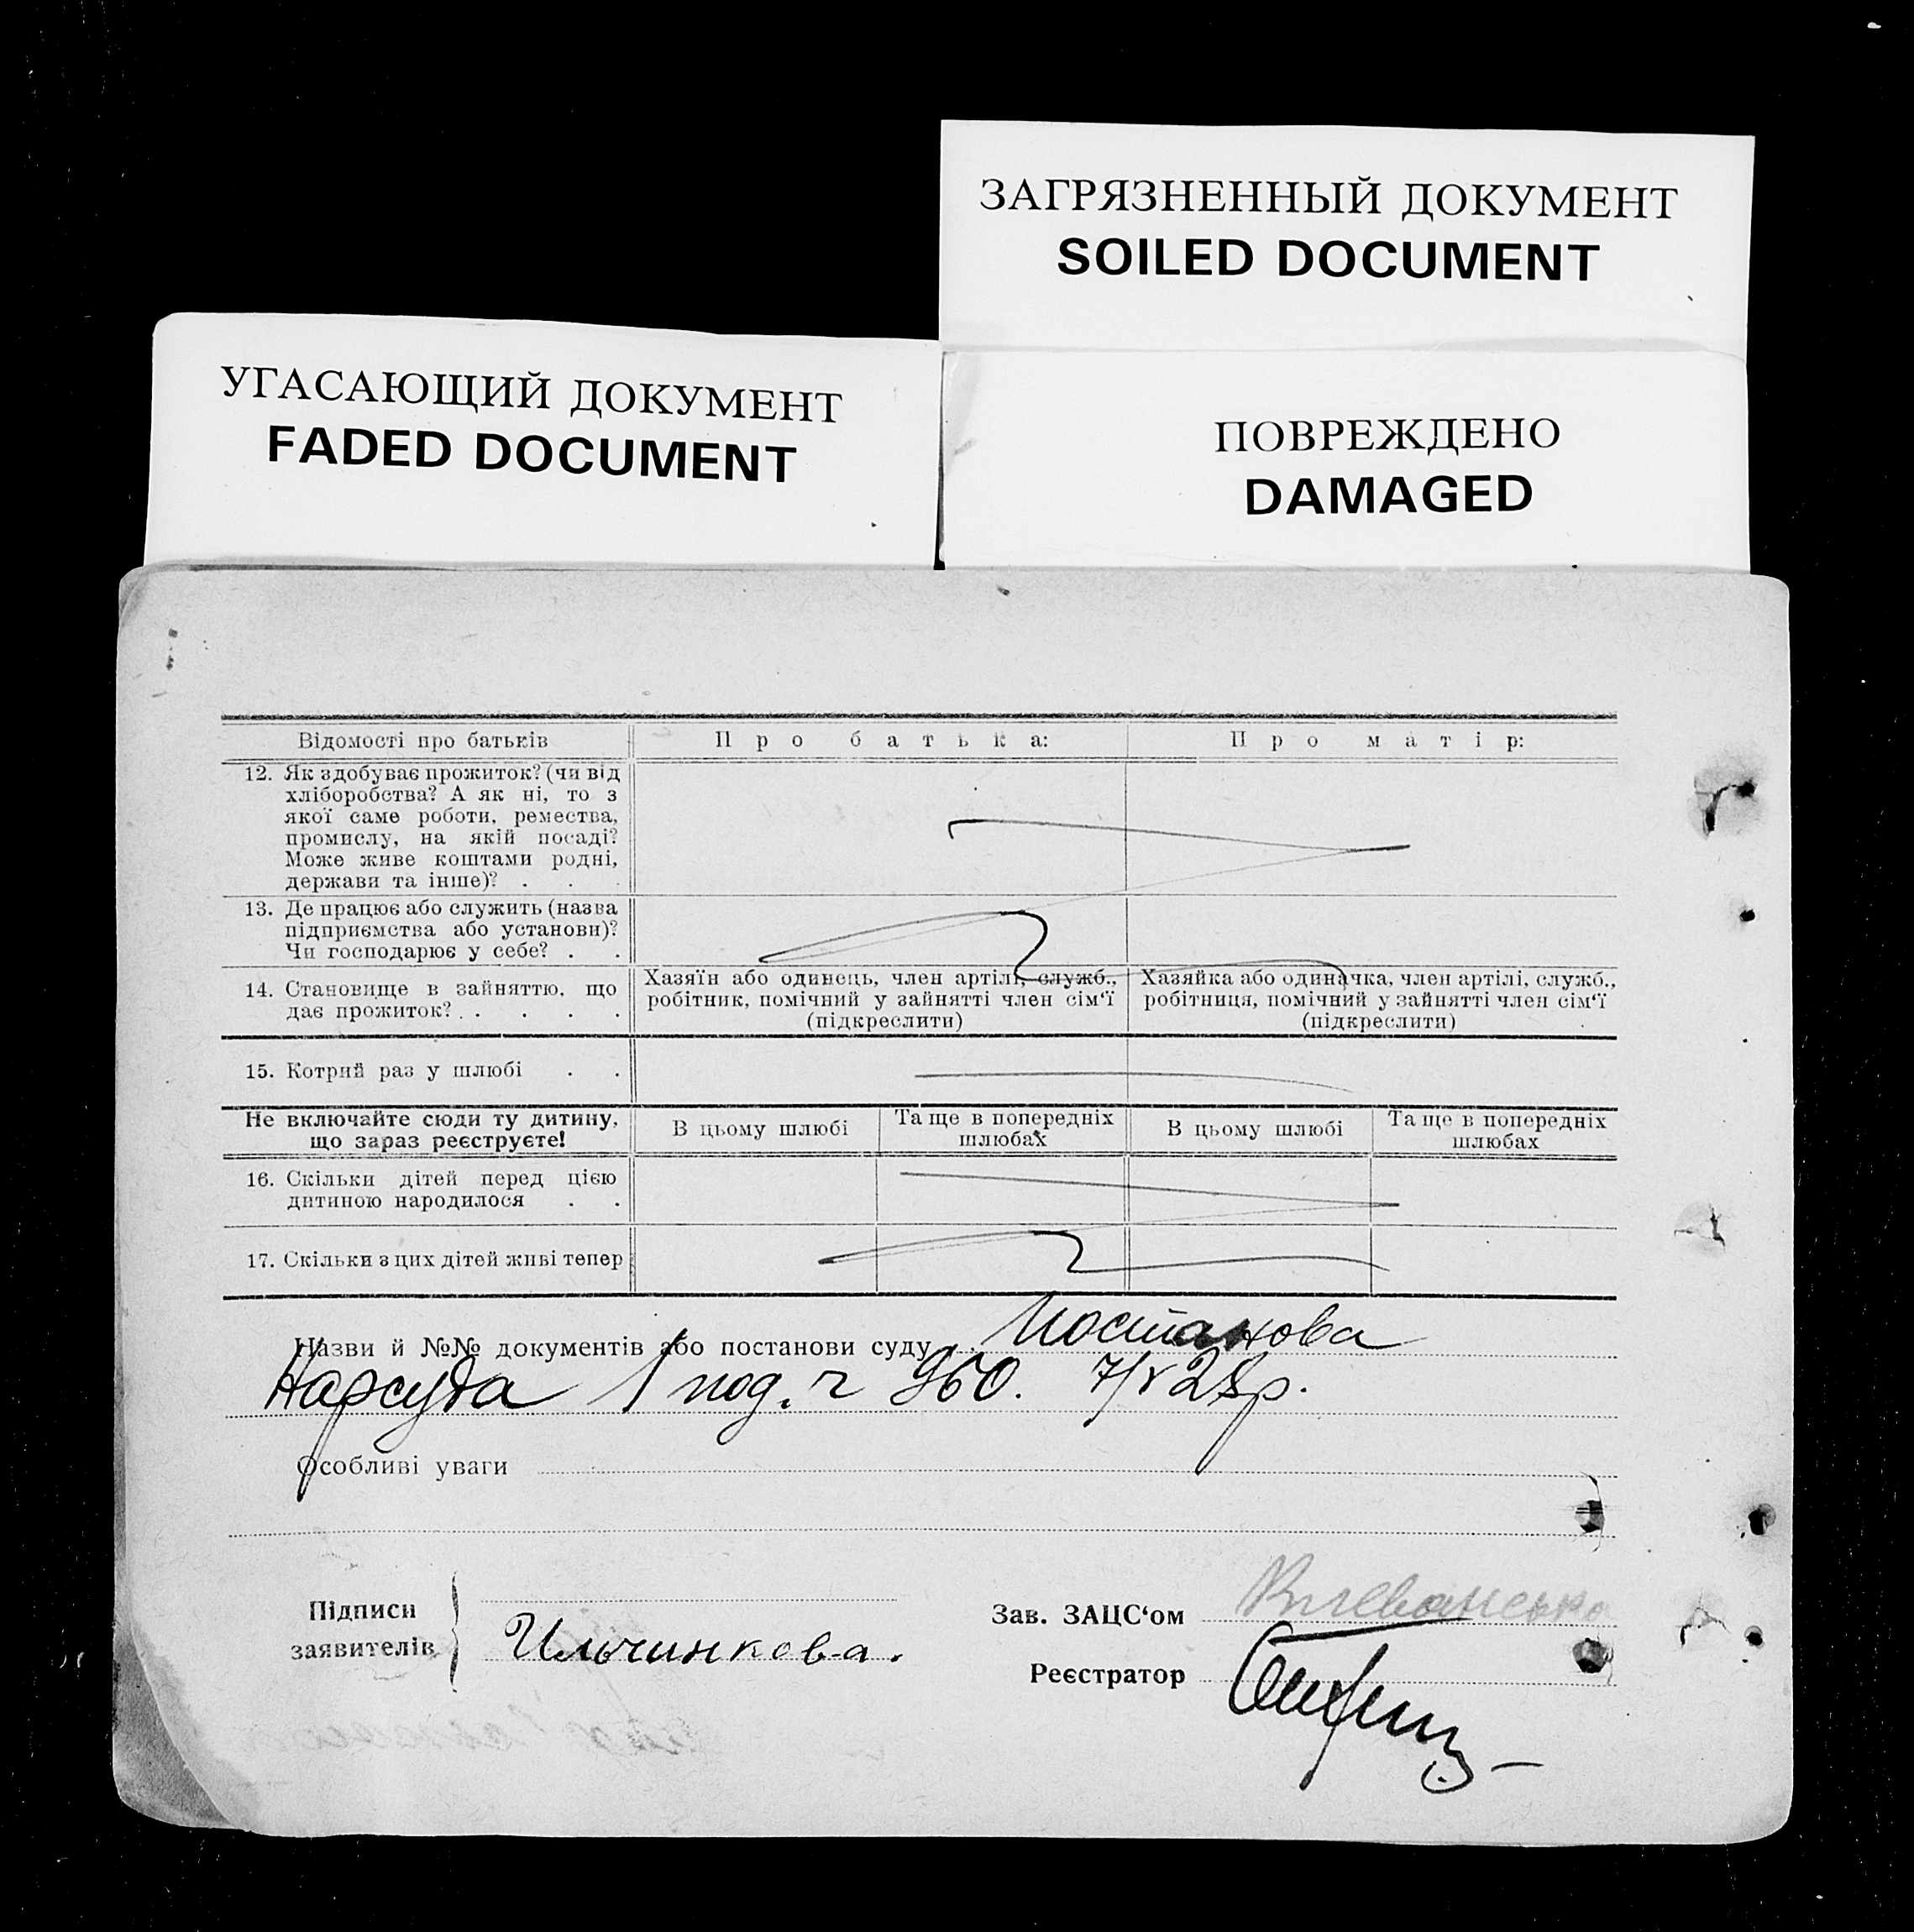 ЗАГРЯЗНЕННЫЙ ДОКУМЕНТ
SOILED DOCUMENT
УГАСАЮЩИЙ ДОКУМЕНТ
FADED DOCUMENT
ПОВРЕЖДЕНО
DAMAGED
Відомості про батьків Про батька: Про матір:
12. Як здобуває прожиток? (чи від
хліборобства? А як ні, то з
якої саме роботи, ремества,
промислу, на якій посаді?
Може живе коштами родні,
держави та інше)? . . .
13. Де працює або служить (назва
підприємства або установи)?
Чи господарює у себе? . .
14. Становище в зайняттю, що
дає прожиток? . . . . .
Хазяїн або одинець, член артілі, служб.,
робітник, помічний у зайнятті член сім‘ї
(підкреслити)
Хазяйка або одиначка, член артілі, служб.,
робітниця, помічний у зайнятті член сім‘ї
(підкреслити)
15. Котрий раз у шлюбі . .
Не включайте сюди ту дитину,
що зараз реєструєте!
В цьому шлюбі
Та ще в попередніх
шлюбах
В цьому шлюбі
Та ще в попередніх
шлюбах
16. Скільки дітей перед цією
дитиною народилося . .
17. Скільки з цих дітей живі тепер
Назви й №№ документів або постанови суду Постанова
Нарсуда 1 под. г 960. 7/V 28р.
Особливі уваги
Підписи
заявителів
Ильчинкова.
Зав. ЗАЦС‘ом
Реєстратор